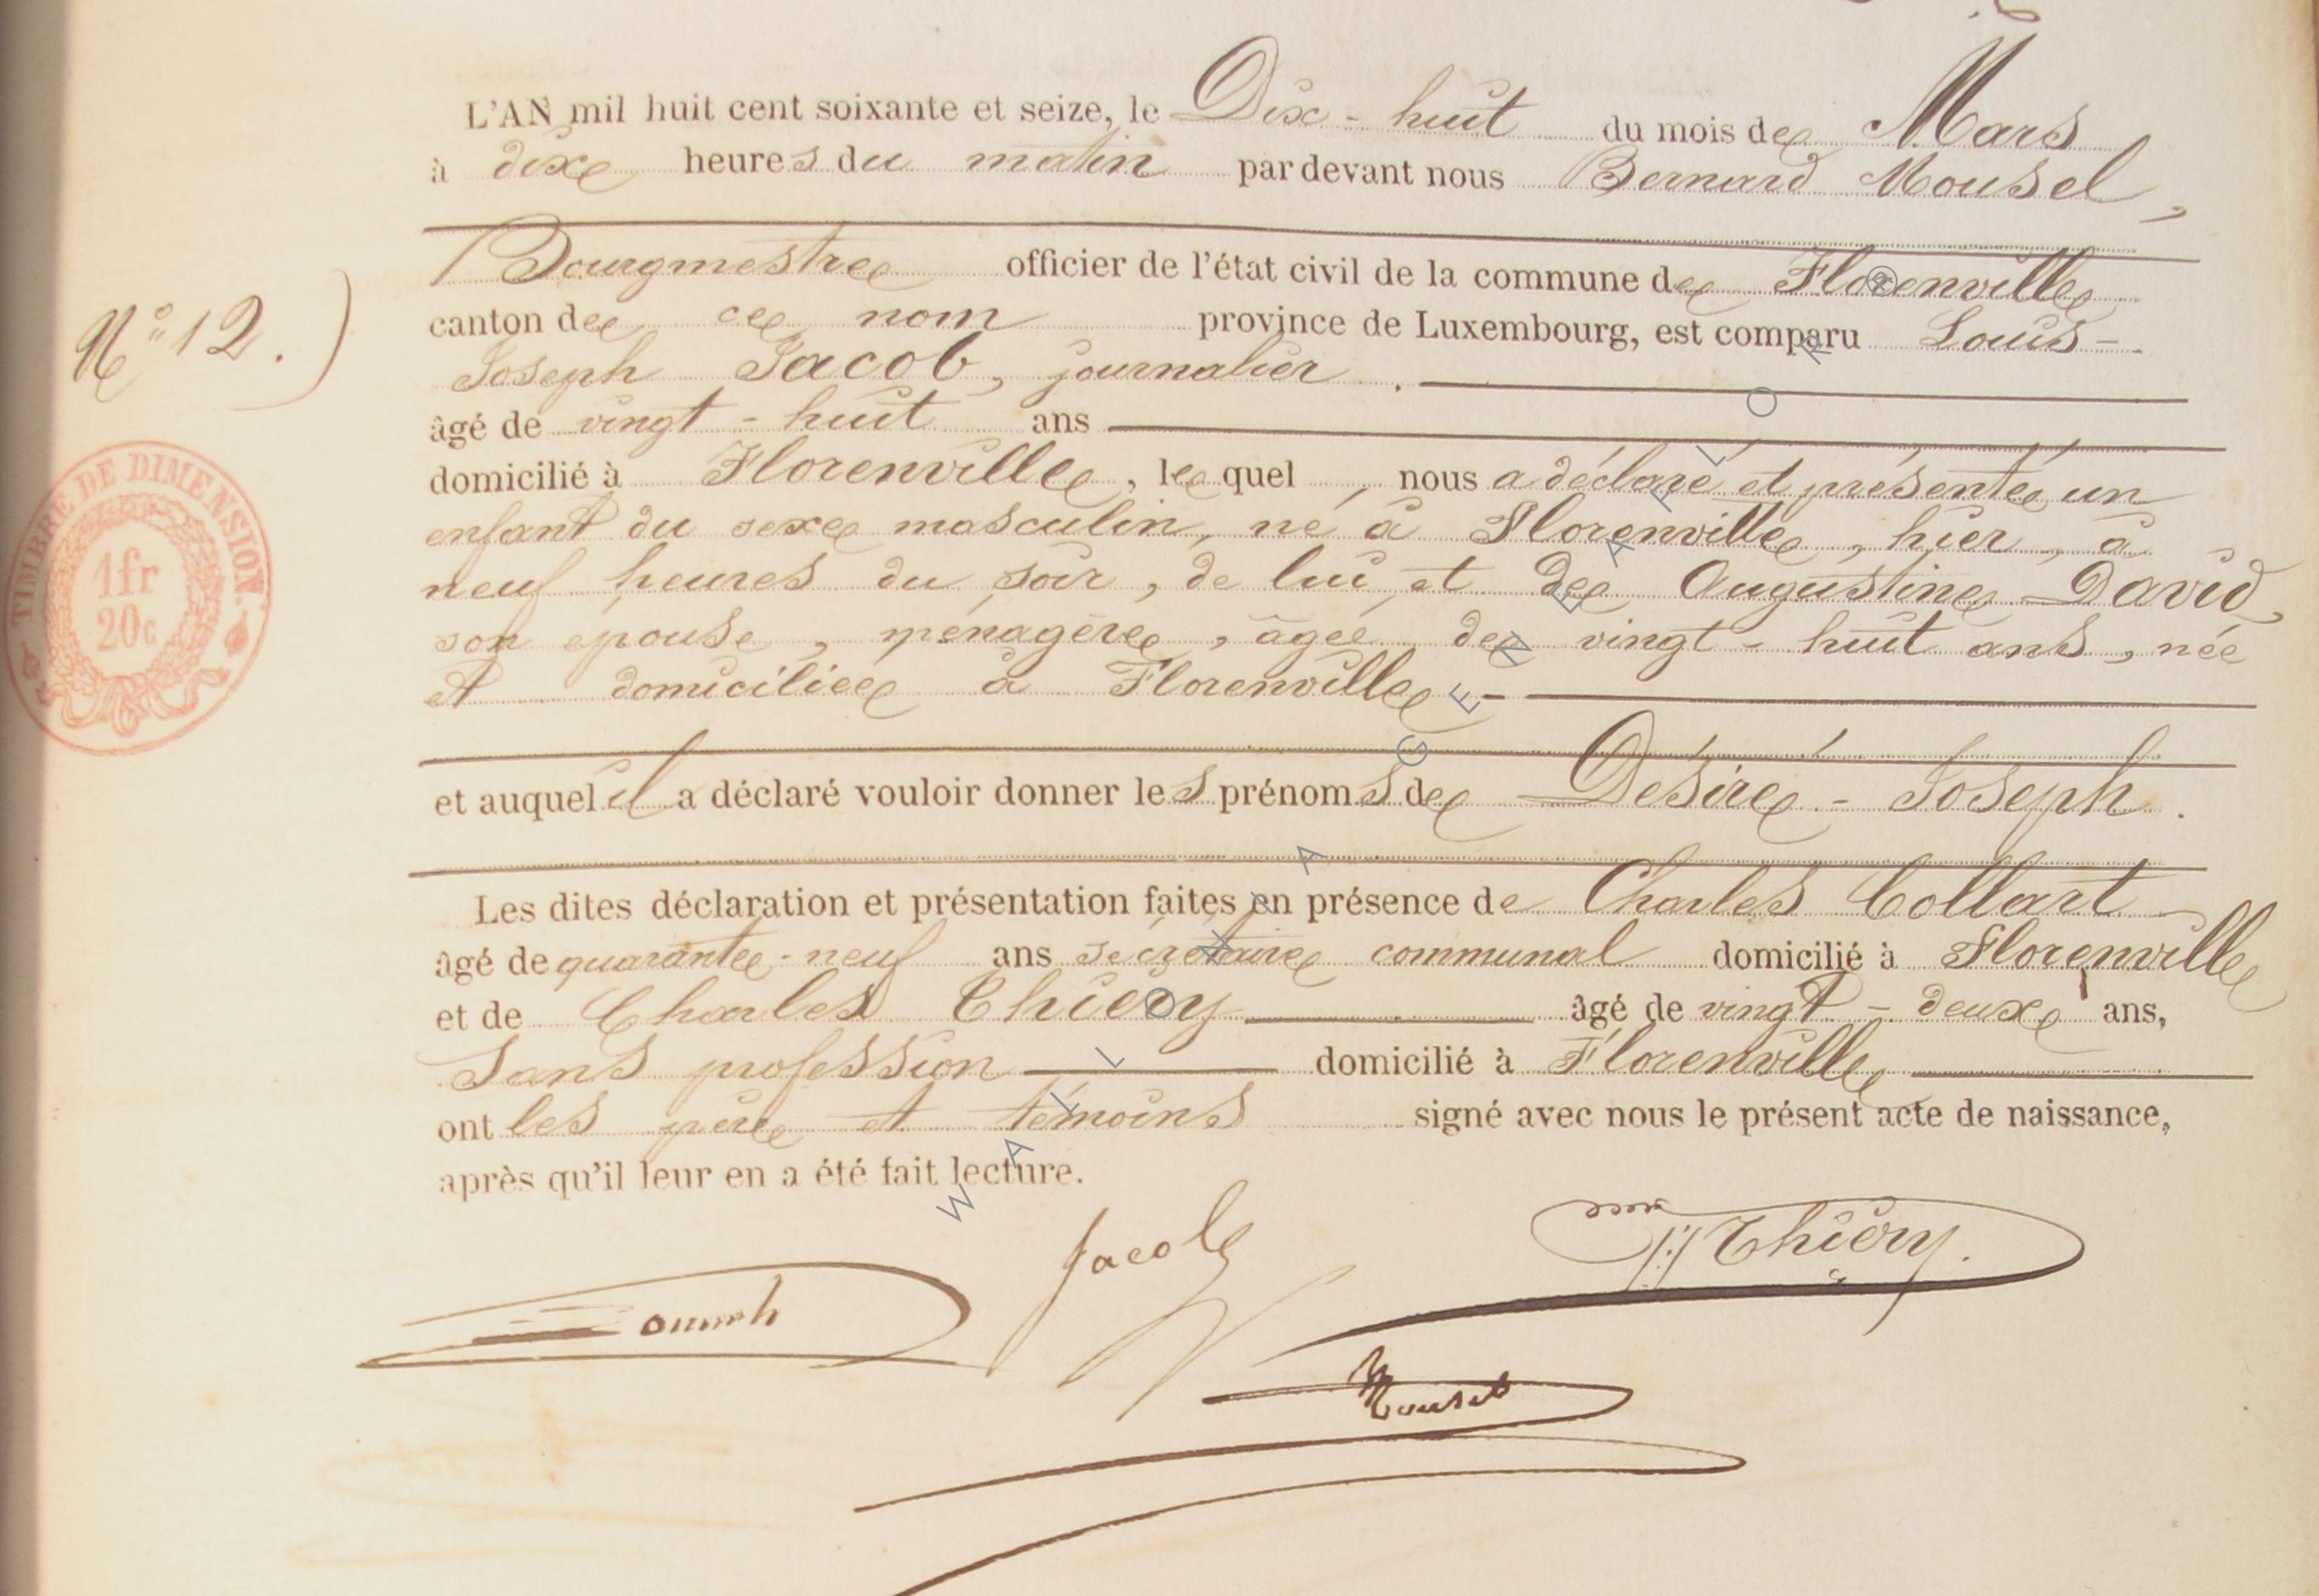 L'AN mil huit cent soixante et seize, le Dix-huit du mois de Mars
à dix heures du matin par devant nous Bernard Mousel,
Bourgmestre officier de l'état civil de la commune de Florenville
N° 12.) canton de ce nom province de Luxembourg, est comparu Louis-
Joseph Jacob, journalier,
âgé de vingt-huit ans
domicilié à Florenville, lequel, nous a déclaré et présenté un
enfant du sexe masculin, né à Florenville, hier, à
neuf heures du soir, de lui et de Augustine David,
son épouse, ménagère, âgée de vingt-huit ans, née
et domiciliée à Florenville -
et auquel il a déclaré vouloir donner les prénoms de Désiré-Joseph.
Les dites déclaration et présentation faites en présence de Charles Collart
âgé de quarante-neuf ans secrétaire communal domicilié à Florenville
et de Charles Thiéry âgé de vingt-deux ans,
sans profession domicilié à Florenville
ont les père et témoins signé avec nous le présent acte de naissance,
après qu'il leur en a été fait lecture.
Jacob
Thiéry.
Mousel
TIMBRE DE DIMENSION.
1fr
20c
WALLONIA GENEALOR®